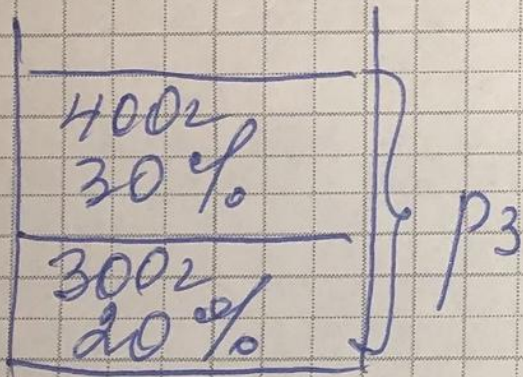 400г
30%
300г
20%
p3